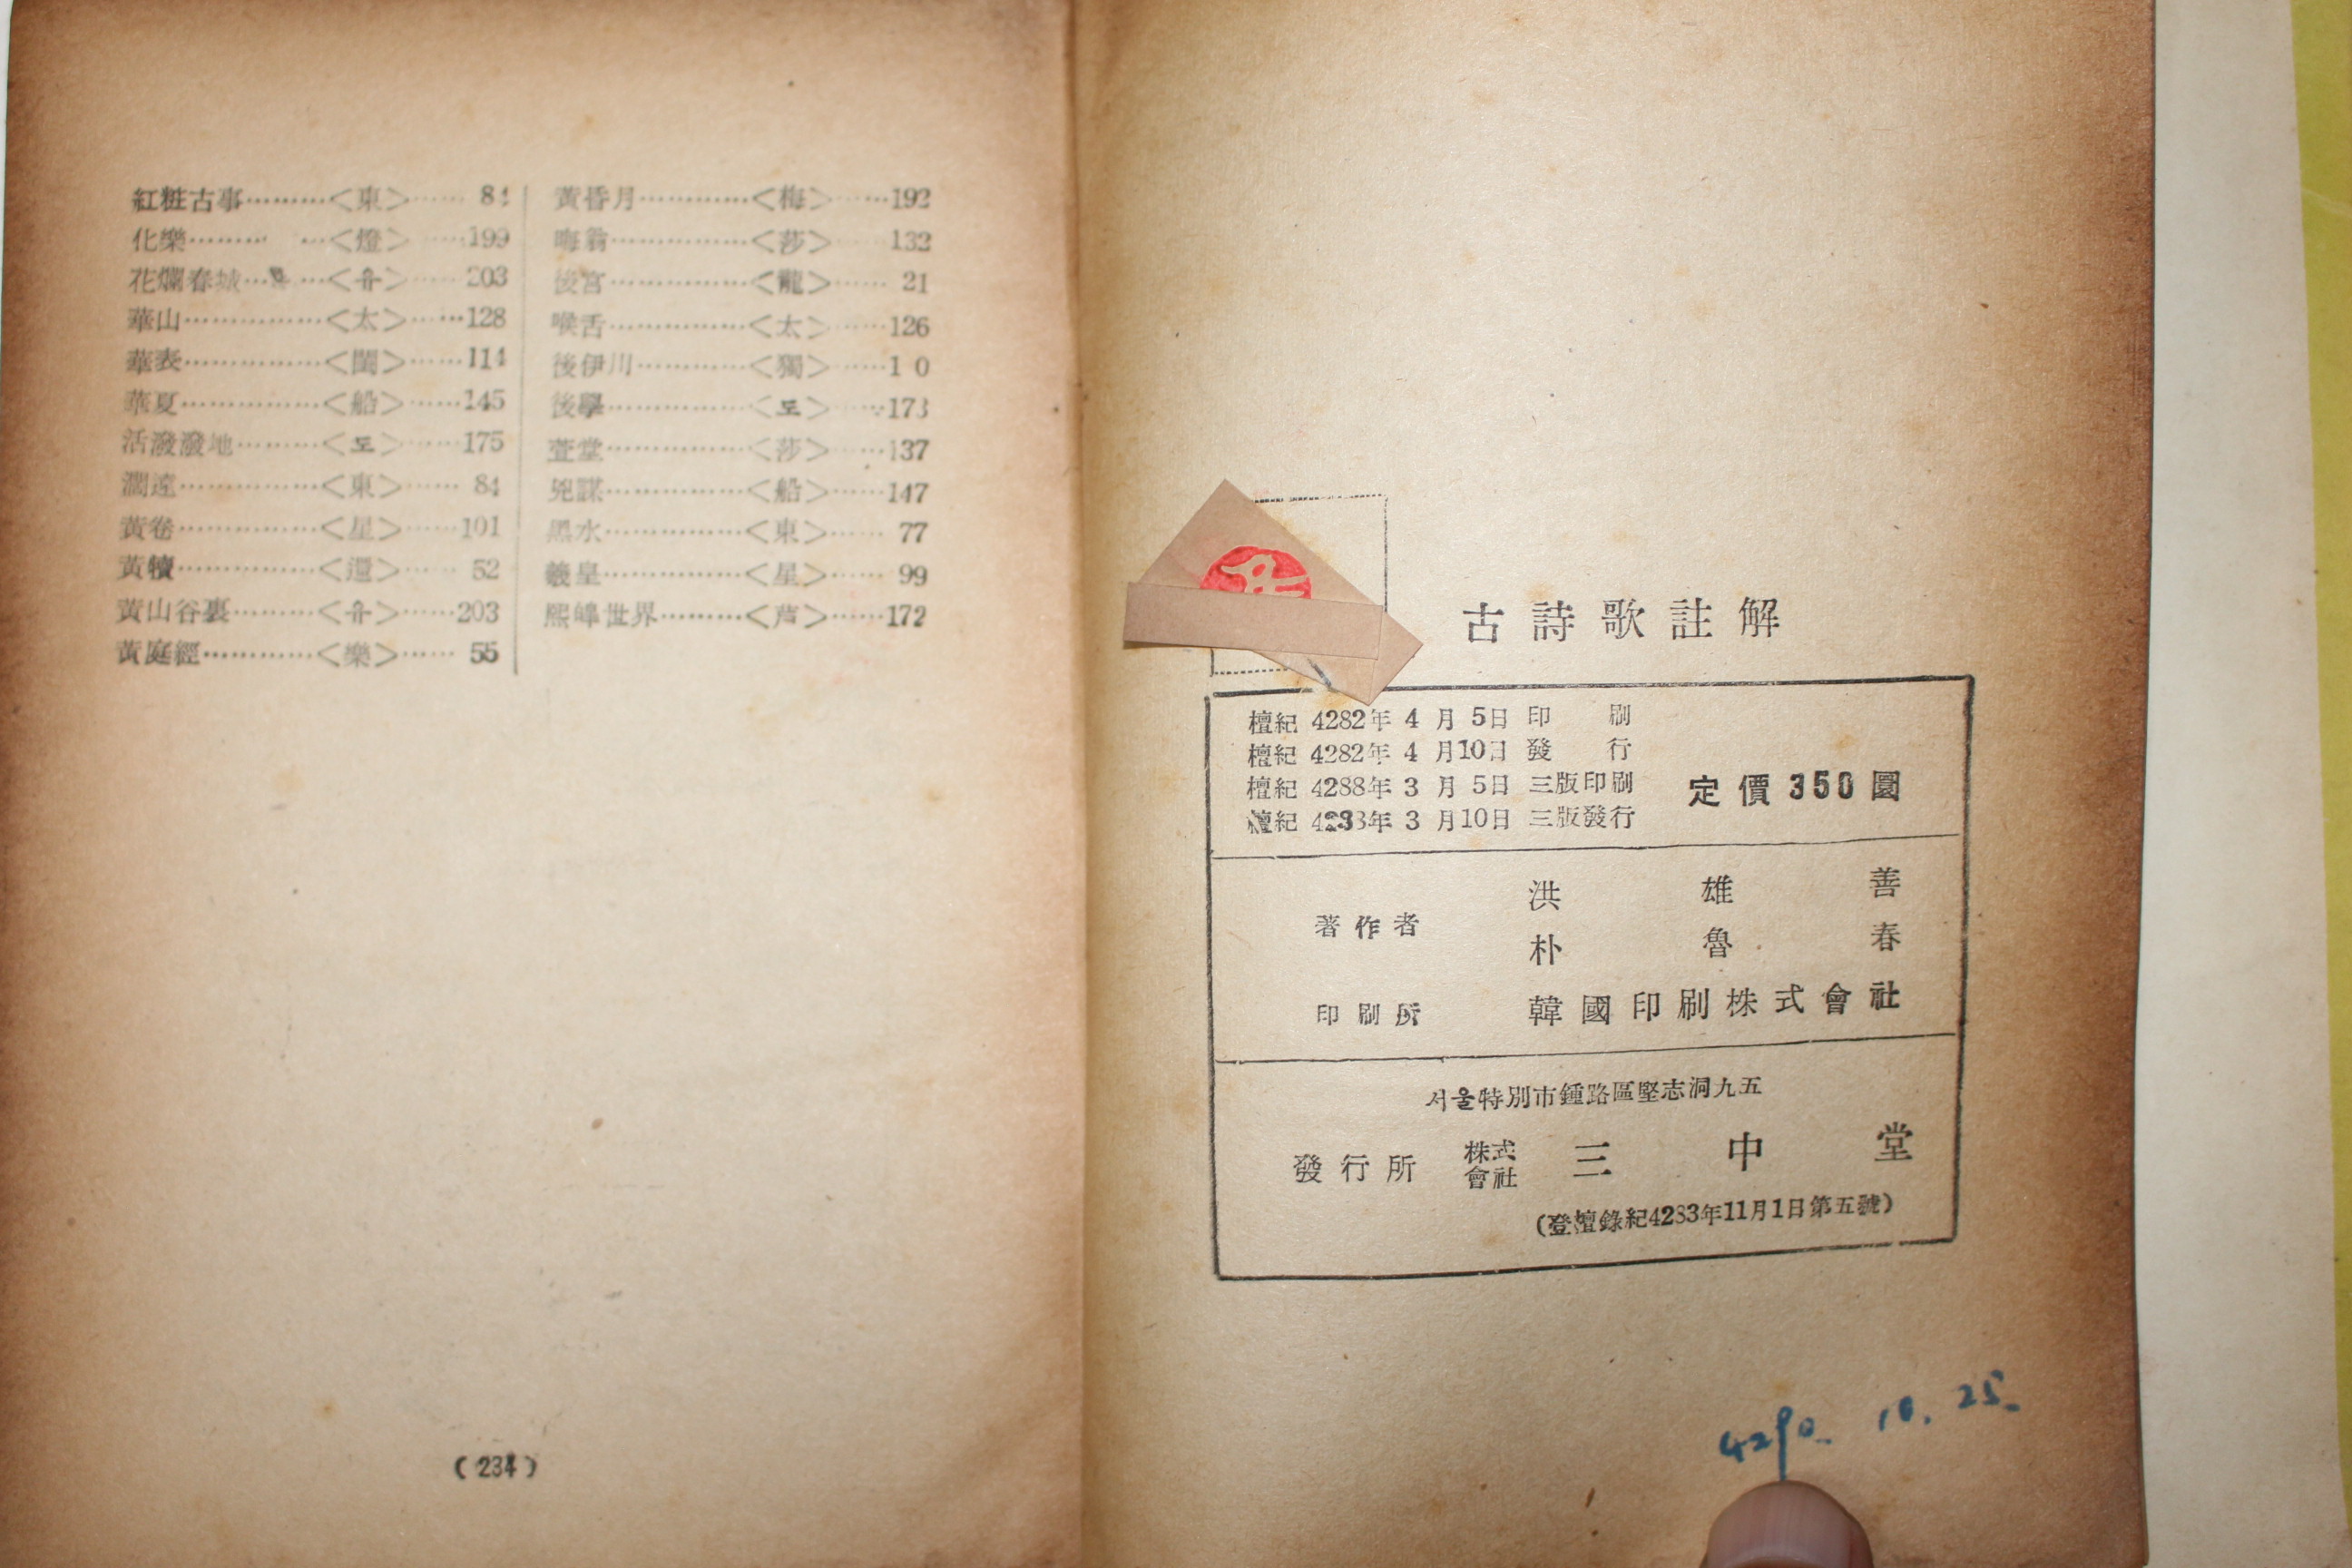 紅粧古事………<東>…… 84
化樂……… …<燈>……199
花爛春城… …<유>……203
華山……………<太>……128
華表……………<閨>……114
華夏……………<船>……145
活潑潑地………<도>……175
濶遠……………<東>…… 84
黃卷……………<星>……101
黃犢……………<還>…… 52
黃山谷裏………<유>……203
黃庭經…………<樂>…… 55
黃昏月…………<梅>……192
晦翁……………<莎>……132
後宮……………<龍>…… 21
喉舌……………<太>……126
後伊川…………<獨>……1 0
後學……………<도>……173
萱堂……………<莎>……137
兇謀……………<船>……147
黑水……………<東>…… 77
羲皇……………<星>…… 99
熙皥世界………<芦>……172
(234)
古詩歌註解
檀紀 4282年 4 月 5日 印 刷
檀紀 4282年 4 月10日 發 行
檀紀 4288年 3 月 5日 三版印刷
檀紀 4288年 3 月10日 三版發行
定價350圜
著作者
洪雄善
朴魯春
印刷所 韓國印刷株式會社
서울特別市鍾路區堅志洞九五
發行所 株式會社 三中堂
(登檀錄紀4283年11月1日第五號)
4290. 10. 25.